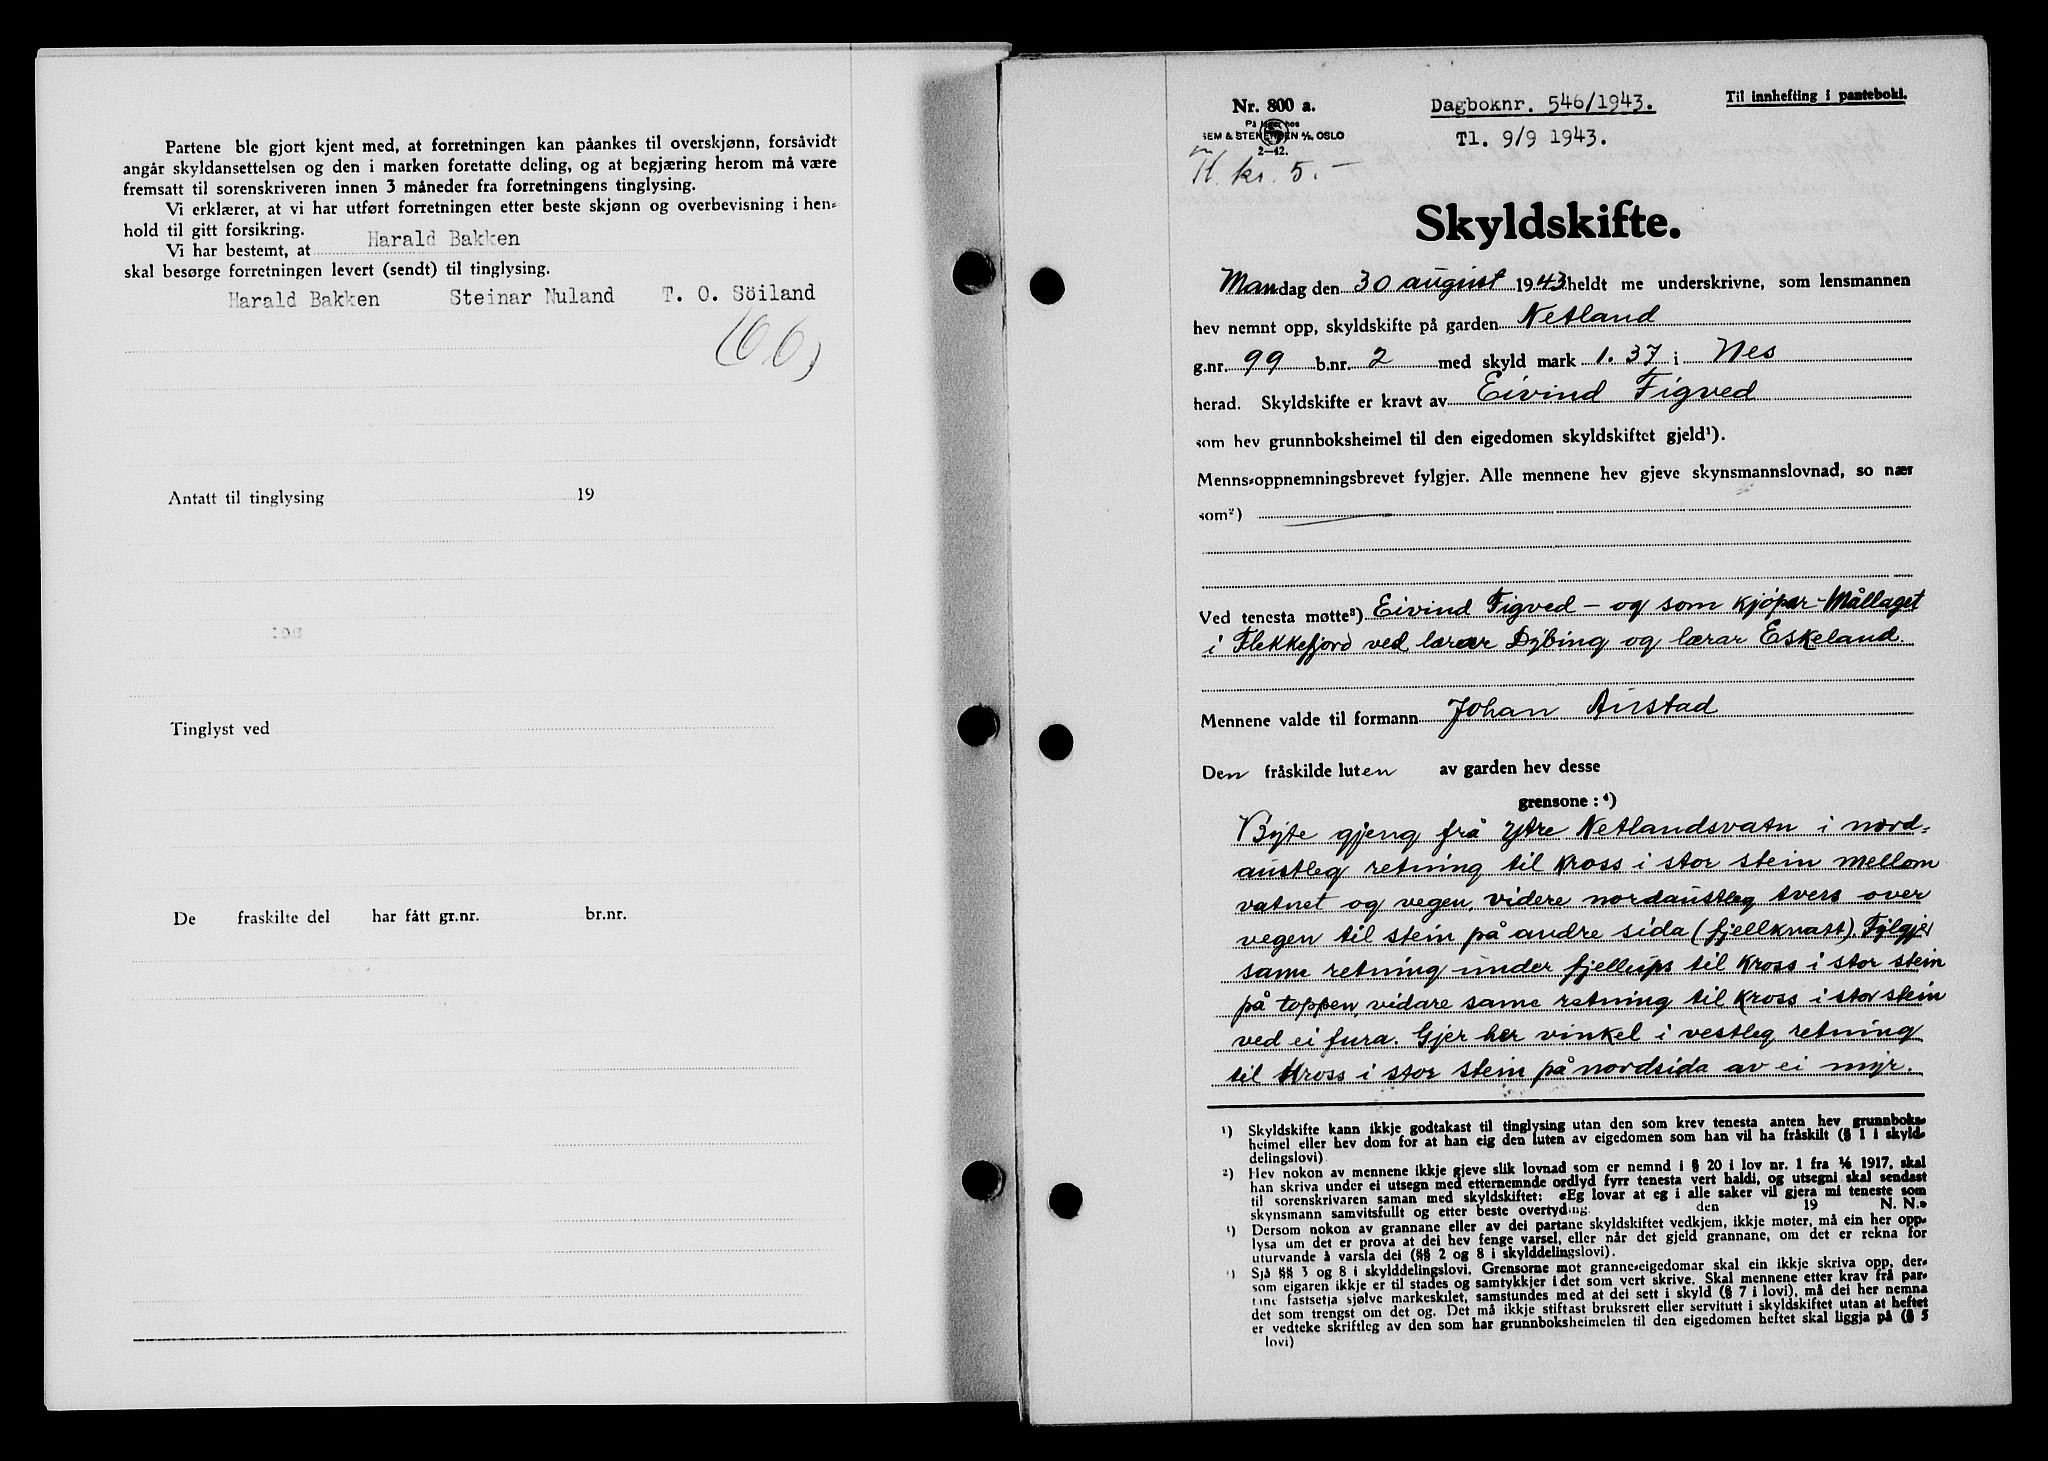 Partene ble gjort kjent med, at forretningen kan påankes til overskjønn, forsåvidt
angår skyldansettelsen og den i marken foretatte deling, og at begjæring herom må være
fremsatt til sorenskriveren innen 3 måneder fra forretningens tinglysing.
Vi erklærer, at vi har utført forretningen etter beste skjønn og overbevisning i hen-
hold til gitt forsikring.
Vi har bestemt, at Harald Bakken
skal besørge forretningen levert (sendt) til tinglysing.
Harald Bakken Steinar Nuland T. O. Söiland
Antatt til tinglysing 19
Tinglyst ved
De fraskilte del har fått gr.nr. br.nr.
Nr. 800 a.
På lager hos
SEM & STENERSEN A/S OSLO
2-42.
kr. 5.-
Dagboknr. 546/1943.
Tl. 9/9 1943.
Til innhefting i panteboki.
Skyldskifte.
Mandag den 30 august 1943 heldt me underskrivne, som lensmannen
hev nemnt opp, skyldskifte på garden Netland
g.nr. 99 b.nr. 2 med skyld mark 1.37 i Nes
herad. Skyldskifte er kravt av Eivind Figved
som hev grunnboksheimel til den eigedomen skyldskiftet gjeld¹).
Menns-oppnemningsbrevet fylgjer. Alle mennene hev gjeve skynsmannslovnad, so nær
som²)
Ved tenesta møtte³) Eivind Figved - og som kjöpar Mållaget
i Flekkefjord ved lærar Dybing og lærar Eskeland.
Mennene valde til formann Johan Austad
Den fråskilde luten av garden hev desse
grensone: ⁴)
Byte gjeng frå ytre Netlandsvatn i nord-
austleg retning til kross i stor stein mellom
vatnet og vegen, videre nordaustleg tvers over
vegen til stein på andre sida (fjellknatt). Fylgjer
same retning under fjellups til kross i stor stein
på toppen, vidare same retning til kross i stor stein
ved ei fura. Gjer her vinkel i vestleg retning
til kross i stor stein på nordsida av ei myr.
¹) Skyldskifte kann ikkje godtakast til tinglysing utan den som krev tenesta anten hev grunnboks-
heimel eller hev dom for at han eig den luten av eigedomen som han vil ha fråskilt (§ 1 i skyld-
delingslovi)
²) Hev nokon av mennene ikkje gjeve slik lovnad som er nemnd i § 20 i lov nr. 1 fra 1/6 1917, skal
han skriva under ei utsegn med etternemnde ordlyd fyrr tenesta vert haldi, og utsegni skal sendast
til sorenskrivaren saman med skyldskiftet: «Eg lovar at eg i alle saker vil gjera mi teneste som
skynsmann samvitsfullt og etter beste overtyding. den 19 N. N.»
³) Dersom nokon av grannane eller av dei partane skyldskiftet vedkjem, ikkje møter, må ein her opp-
lysa um det er prova at dei hev fenge varsel, eller når det gjeld grannane, om det er rekna for
uturvande å varsla dei (§§ 2 og 8 i skylddelingslovi).
⁴) Sjå §§ 3 og 8 i skylddelingslovi. Grensorne mot granne-eigedomar skal ein ikkje skriva opp, der-
som eigaren ikkje er til stades og samtykkjer i det som vert skrive. Skal mennene etter krav frå par-
tane fastsetja sjølve markeskilet, samstundes med at dei sett i skyld (§ 7 i lovi), må dei her nemna
det som trengst om det og. Det må ikkje stiftast bruksrett eller servitutt i skyldskiftet utan at heftet
er vedteke skriftleg av den som har grunnboksheimelen til den eigedomen heftet skal liggja på (§ 5
lovi)